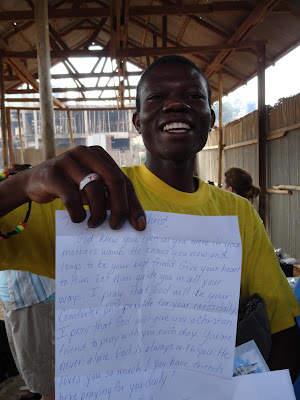 God knew you even as you were in your
mothers womb. He knows you now and
longs to be your best friend. Give your heart
to Him. Let Him guide you in all your
ways. I pray that God will be your
Comforter and provide for your needs daily.
I pray that God will give you a christian
friend to pray with you each day. You are
never alone. God is always with you. He
loves you so much. You have friends
here praying for you daily.